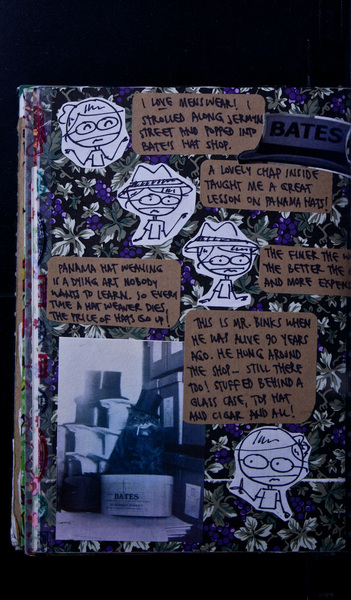 I LOVE MENSWEAR! I
STROLLED ALONG JERMYN
STREET AND POPPED INTO
BATE'S HAT SHOP.
BATES
A LOVELY CHAP INSIDE
TAUGHT ME A GREAT
LESSON ON PANAMA HATS!
THE FINER THE W
THE BETTER THE
AND MORE EXPENS
PANAMA HAT WEAVING
IS A DYING ART NOBODY
WANTS TO LEARN. SO EVERY
TIME A HAT WEAVER DIES,
THE PRICE OF HATS GO UP!
THIS IS MR. BINKS WHEN
HE WAS ALIVE 90 YEARS
AGO. HE HUNG AROUND
THE SHOP... STILL THERE
TOO! STUFFED BEHIND A
GLASS CASE, TOP HAT
AND CIGAR AND ALL!
BATES